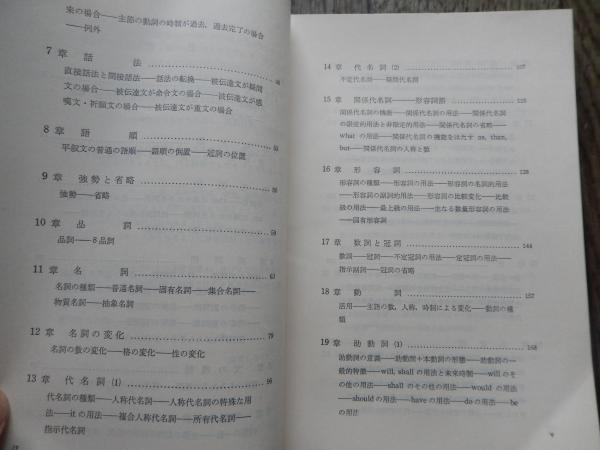 来の場合――主節の動詞の時制が過去，過去完了の場合
――例外
7 章 話 法
直接話法と間接話法――話法の転換――被伝達文が疑問
文の場合――被伝達文が命令文の場合――被伝達文が感
嘆文・祈願文の場合――被伝達文が重文の場合
8 章 語 順
平叙文の普通の語順――語順の倒置――冠詞の位置
9 章 強勢と省略
強勢――省略
10 章 品 詞 59
品詞――8品詞
11 章 名 詞 63
名詞の種類――普通名詞――固有名詞――集合名詞――
物質名詞――抽象名詞
12 章 名詞の変化 79
名詞の数の変化――格の変化――性の変化
13 章 代 名 詞 (1)
代名詞の種類――人称代名詞――人称代名詞の特殊な用
法――it の用法――複合人称代名詞――所有代名詞――
指示代名詞
14 章 代 名 詞 (2) 107
不定代名詞――疑問代名詞
15 章 関係代名詞――形容詞節
関係代名詞の機能――関係代名詞の用法――関係代名詞
の限定的用法と非限定的用法――関係代名詞の省略――
what の用法――関係代名詞の機能をはたす as, than,
but――関係代名詞の人称と数
16 章 形 容 詞 128
形容詞の種類――形容詞の用法――形容詞の名詞的用法
――形容詞の副詞的用法――形容詞の比較変化――比較
級の用法――最上級の用法――主なる数量形容詞の用法
――固有形容詞
17 章 数詞と冠詞 144
数詞――冠詞――不定冠詞の用法――定冠詞の用法――
指示副詞――冠詞の省略
18 章 動 詞 157
活用――主語の数，人称，時制による変化――動詞の種
類
19 章 助 動 詞 (1) 168
助動詞の意義――助動詞＋本動詞の形態――助動詞の一
般的特徴――will, shall の用法と未来時制――will のそ
の他の用法――shall のその他の用法――would の用法
――should の用法――have の用法――do の用法――be
の用法
v